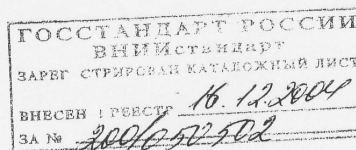 ГОССТАНДАРТ РОССИИ
ВНИИстандарт
ЗАРЕГ СТРИРОВАН КАТАЛОЖНЫЙ ЛИСТ
ВНЕСЕН РЕЕСТР 16.12.2004
ЗА №